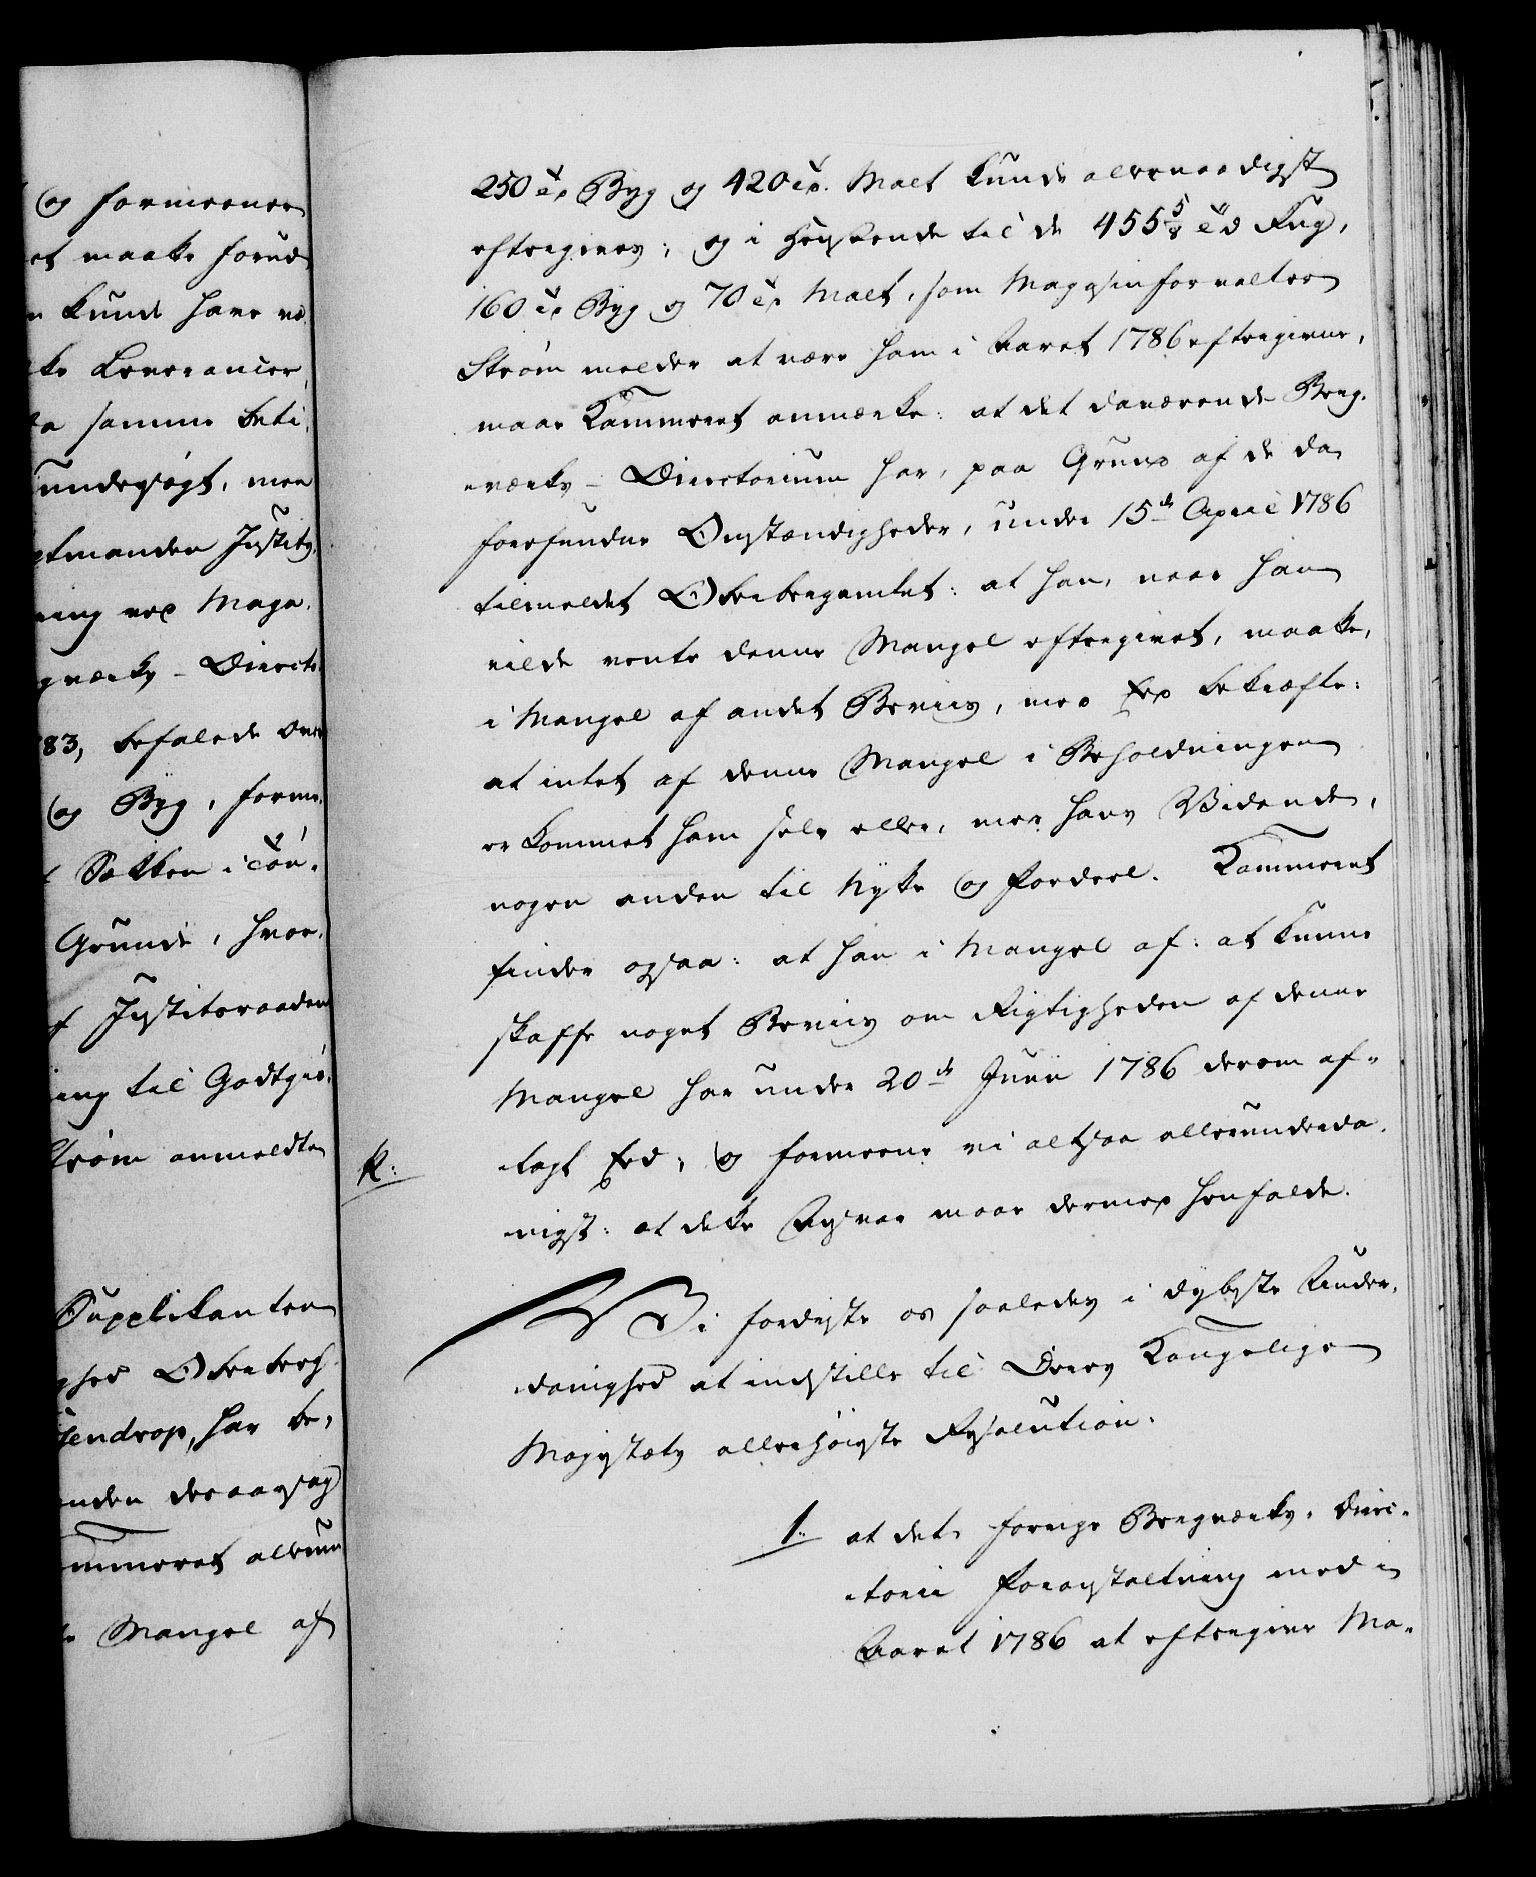 og formeener
et maatte forud
kunde have væ-
ke Leverancer,
samme beti-
undersøgt, men
tmanden Justitz-
ing ved Maga-
gværks-Directo-
83, befalede Over-
og Byg, forme-
Sækken i Tøn-
Grunde, hvor-
f Justitsraaden
ing til Godtgiø-
trøm anmeldte
Supplikanten
ghed Overbergh-
jendrop, har be-
nden desaarsag
mmeret allerun-
Mangel af
250 td Byg og 420 td. Malt kunde allernaadigst
eftergives; og i Henseende til de 455 5/8 td Rug,
160 td Byg og 70 td Malt, som Magasinforvalter
Strøm melder at være ham i Aaret 1786 eftergivne,
maae Kammeret anmærke: at det daværende Berg-
værks-Directorium har, paa Grund af de da
forefundne Omstændigheder, under 15de April 1786
tilmeldet Overbergamtet: at han, naar han
vilde vente denne Mangel eftergivet, maatte,
i Mangel af andet Beviis, med Eed bekræfte:
at intet af denne Mangel i Beholdningen
er kommet ham selv eller, med hans Vidende,
nogen anden til Nytte og Fordeel. Kammeret
finder ogsaa: at han i Mangel af: at kunne
skaffe noget Beviis om Rigtigheden af denne
Mangel har under 20de Junii 1786 derom af-
k: lagt Eed; og formeene vi altsaa allerunderda-
nigst: at dette Ansvar maae dermed henfalde.
Vi fordriste os saaledes i dybeste Under-
danighed at indstille til Deres Kongelige
Majestæts allerhøieste Resolution.
1: at det forrige Bergværks-Direc-
torii Foranstaltning med i
Aaret 1786 at eftergive Ma-